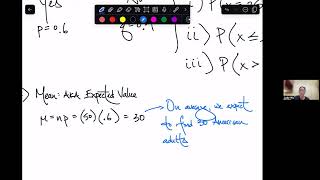 Yes
p=0.6
ii) P(x ≤
iii) P(x >
) Mean: AKA Expected Value
μ = np = (50)(.6) = 30
On average we expect
to find 30 American
adults